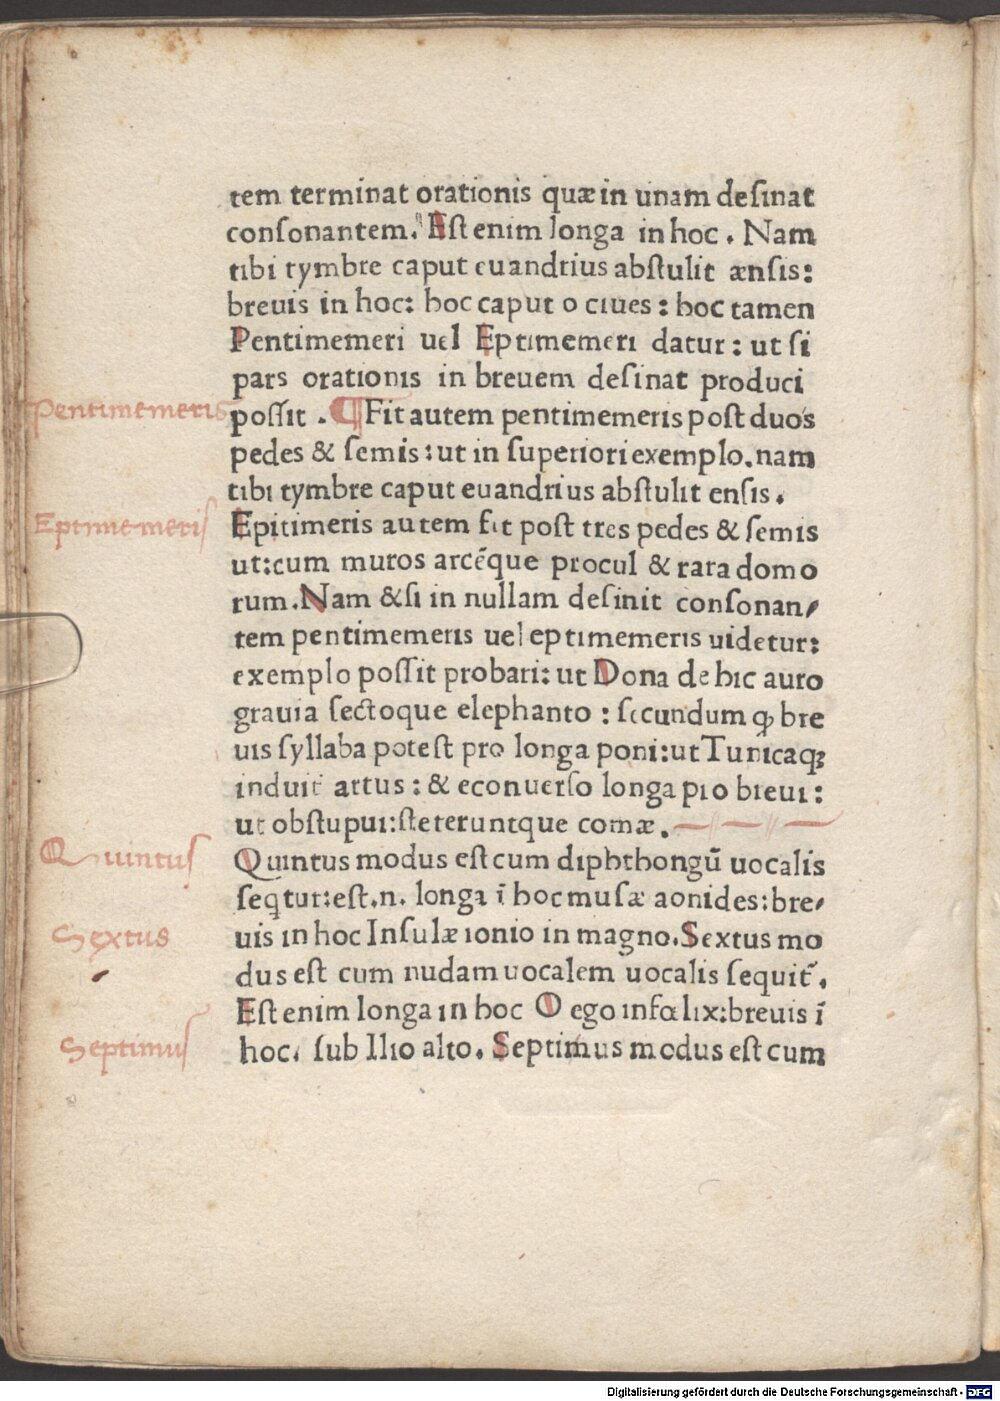 tem terminat orationis quæ in unam deſinat
conſonantem. Eſt enim longa in hoc . Nam
tibi tymbre caput euandrius abſtulit ænſis:
breuis in hoc: hoc caput o ciues : hoc tamen
Pentimemeri uel Eptimemeri datur : ut ſi
pars orationis in breuem deſinat produci
Pentimemeris
poſſit . ¶ Fit autem pentimemeris poſt duos
pedes & ſemis : ut in ſuperiori exemplo. nam
tibi tymbre caput euandrius abſtulit enſis .
Eptimemeris
Epitimeris autem fit poſt tres pedes & ſemis
ut: cum muros arcēque procul & rara domo
rum. Nam & ſi in nullam deſinit conſonan-
tem pentimemeris uel eptimemeris uidetur:
exemplo poſſit probari: ut Dona de hic auro
grauia ſectoque elephanto : ſecundum ꝙ bre
uis ſyllaba poteſt pro longa poni: ut Tunicaqꝫ
induit artus : & econuerſo longa pro breui :
ut obſtupui: ſteteruntque comæ .
Quintus
Quintus modus eſt cum diphthongū uocalis
ſeq̄tur: eſt .n. longa ī hoc muſæ aonides: bre-
Sextus
uis in hoc Inſulæ ionio in magno. Sextus mo
dus eſt cum nudam uocalem uocalis ſequit̃ .
Eſt enim longa in hoc O ego infœlix: breuis ī
Septimus
hoc. ſub Ilio alto. Septimus modus eſt cum
Digitalisierung gefördert durch die Deutsche Forschungsgemeinschaft - DFG